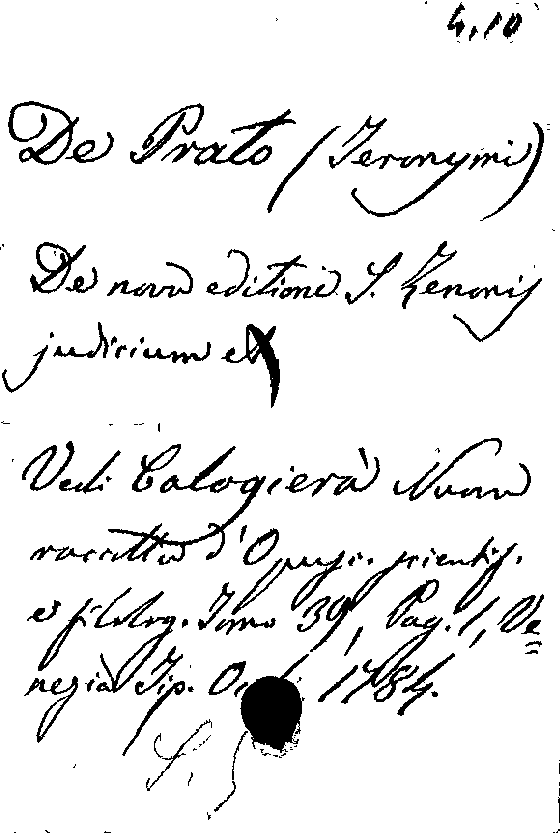 4.10
De Prato (Jeronymi)
De nova editione S. Zenonis
judicium et
Vedi Calogierà Nuova
raccolta d'Opusc. scientif.
e filolog. Tomo 39, Pag. 1, Ve=
nezia Tip. 1784.
S.